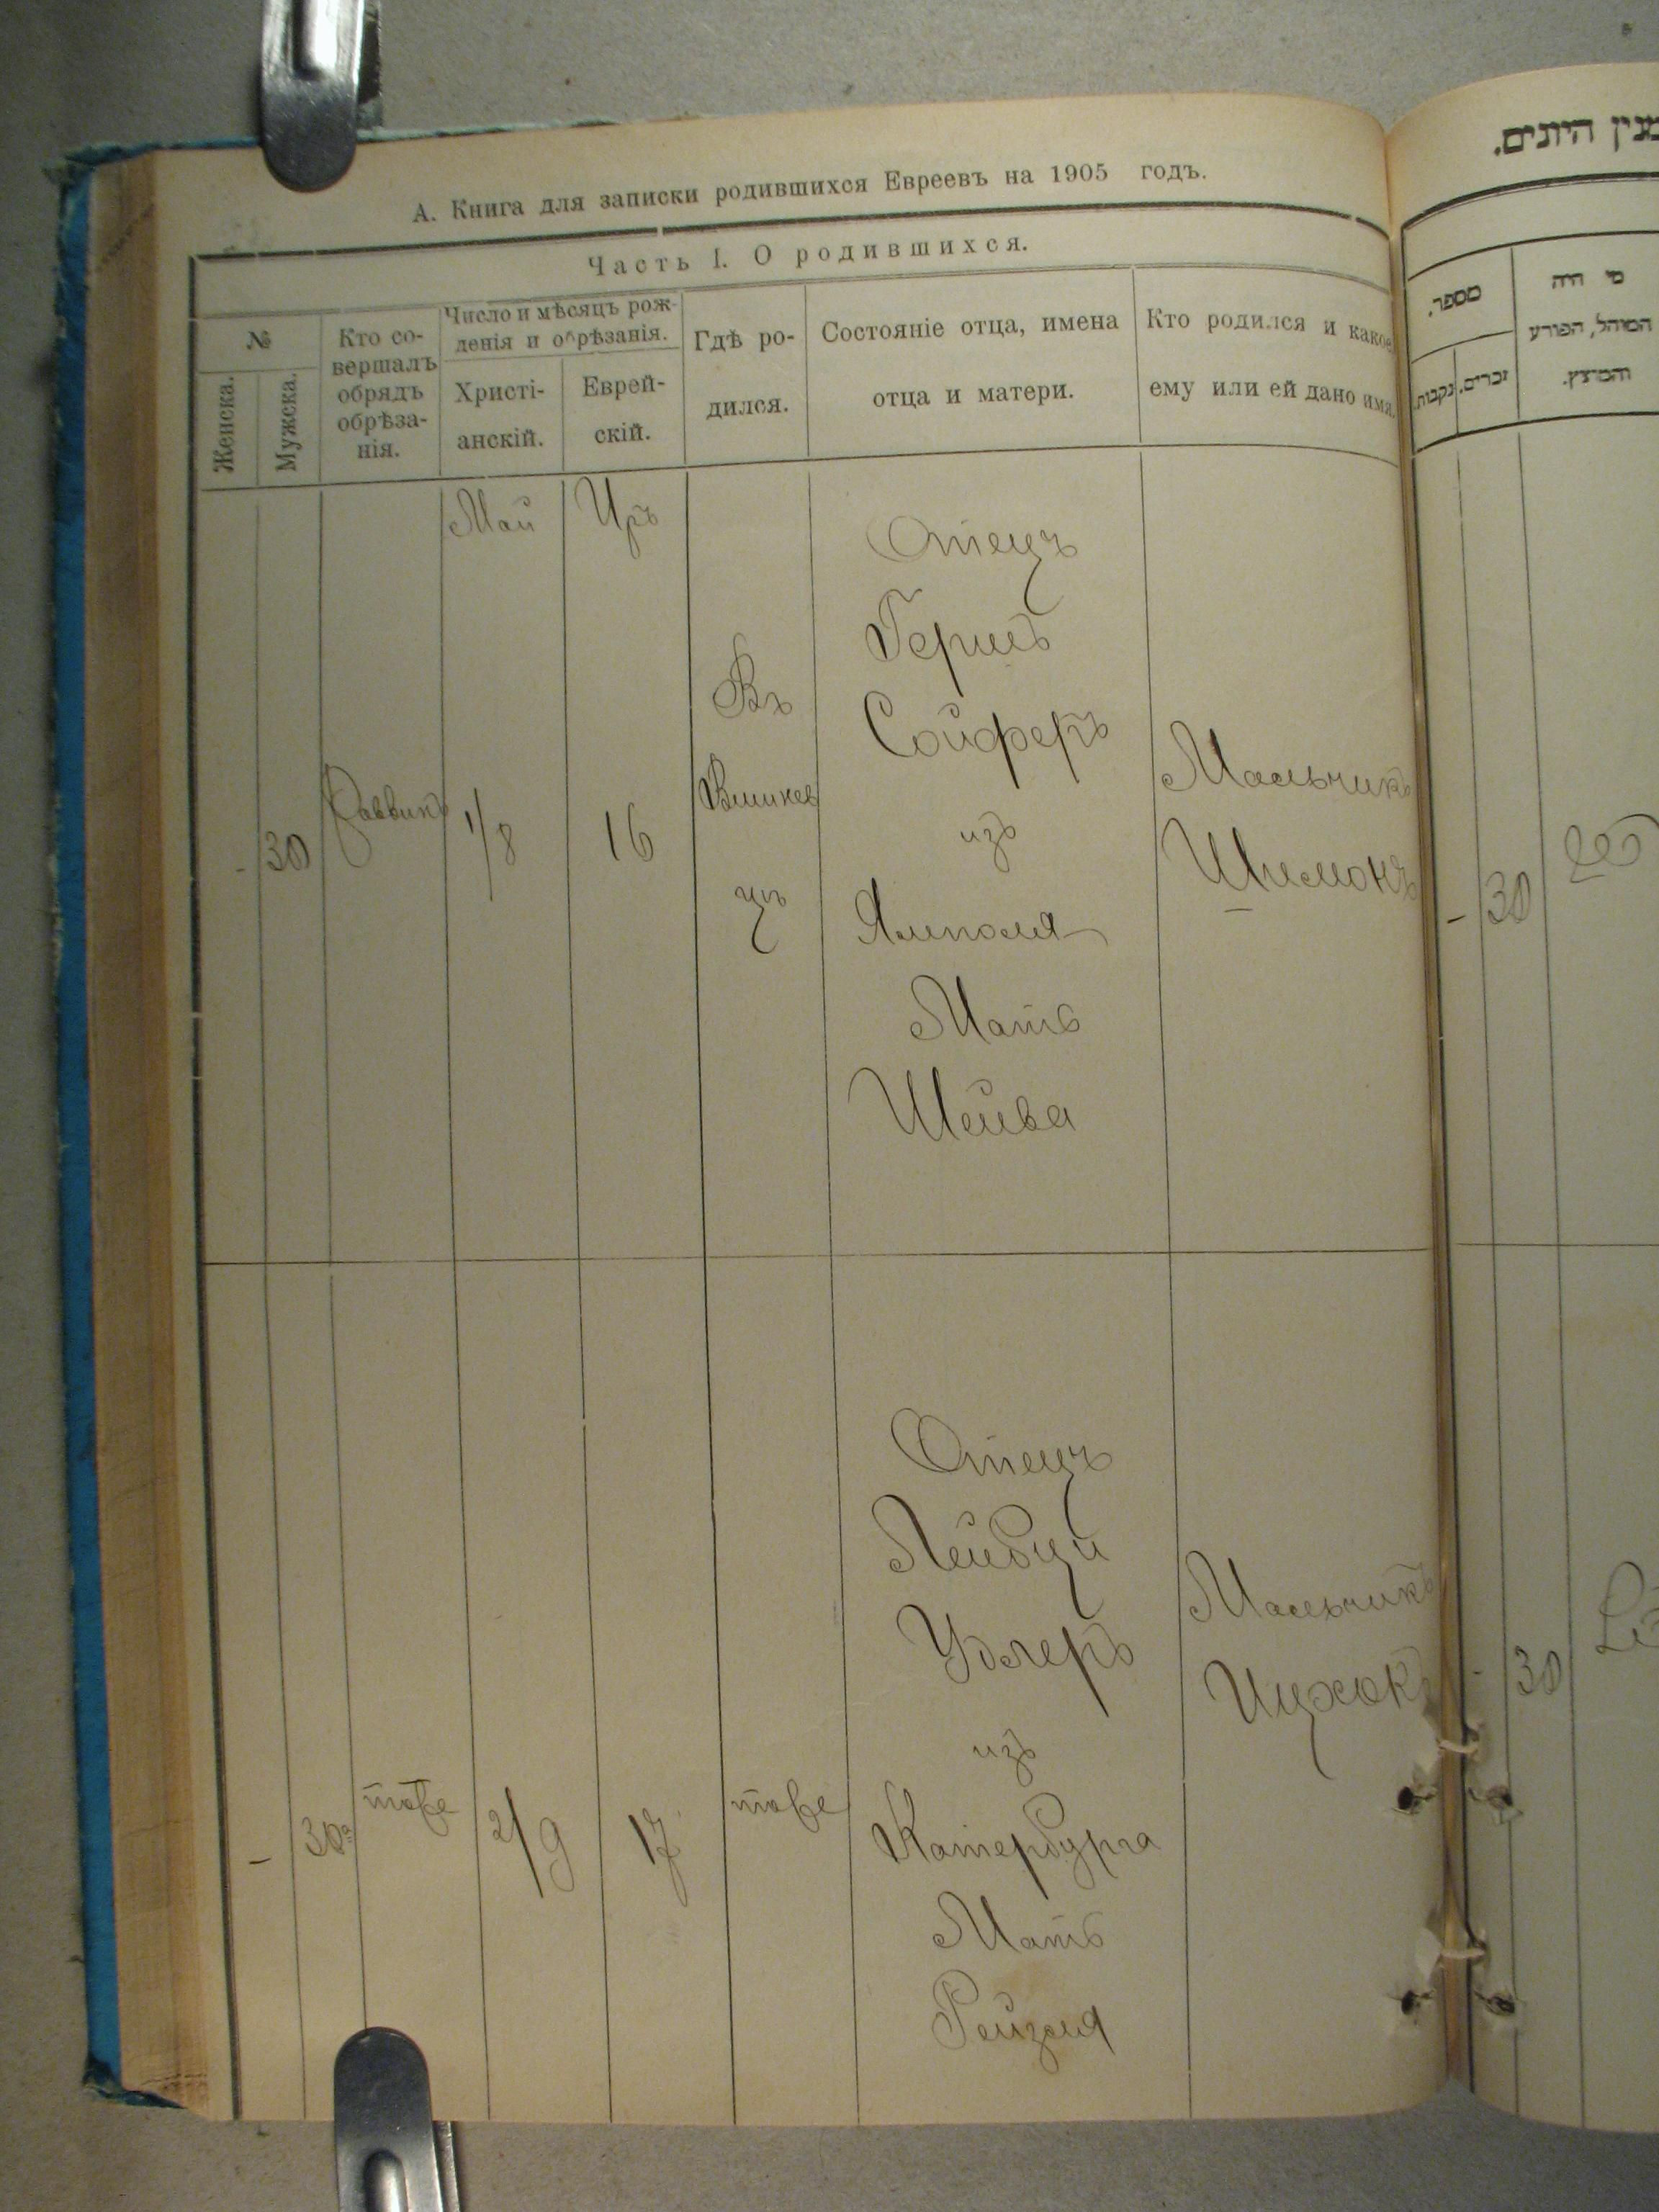 А. Книга для записки родившихся Евреевъ на 1905 годъ.
Часть I. О родившихся.
№
Женска.
Мужска.
Кто со-
вершалъ
обрядъ
обрѣза-
нія.
Число и мѣсяцъ рож-
денія и обрѣзанія.
Христі-
анскій.
Еврей-
скій.
Гдѣ ро-
дился.
Состояніе отца, имена
отца и матери.
Кто родился и какое
ему или ей дано имя.
Май
Иръ
-
30
Раввинъ
1/8
16
Въ
Вишнев
цъ
Отецъ
Гершъ
Сойферъ
изъ
Ямполя
Мать
Шейва
Мальчикъ
Шимонъ
-
30а
тоже
2/9
17
тоже
Отецъ
Лейбци
Удлеръ
изъ
Катербурга
Мать
Рейзля
Мальчикъ
Ицхокъ
היתים.
מספר.
נקבות.
זכרים.
מי היה
המוהל, הפורע
והמוצץ.
-
30
-
30